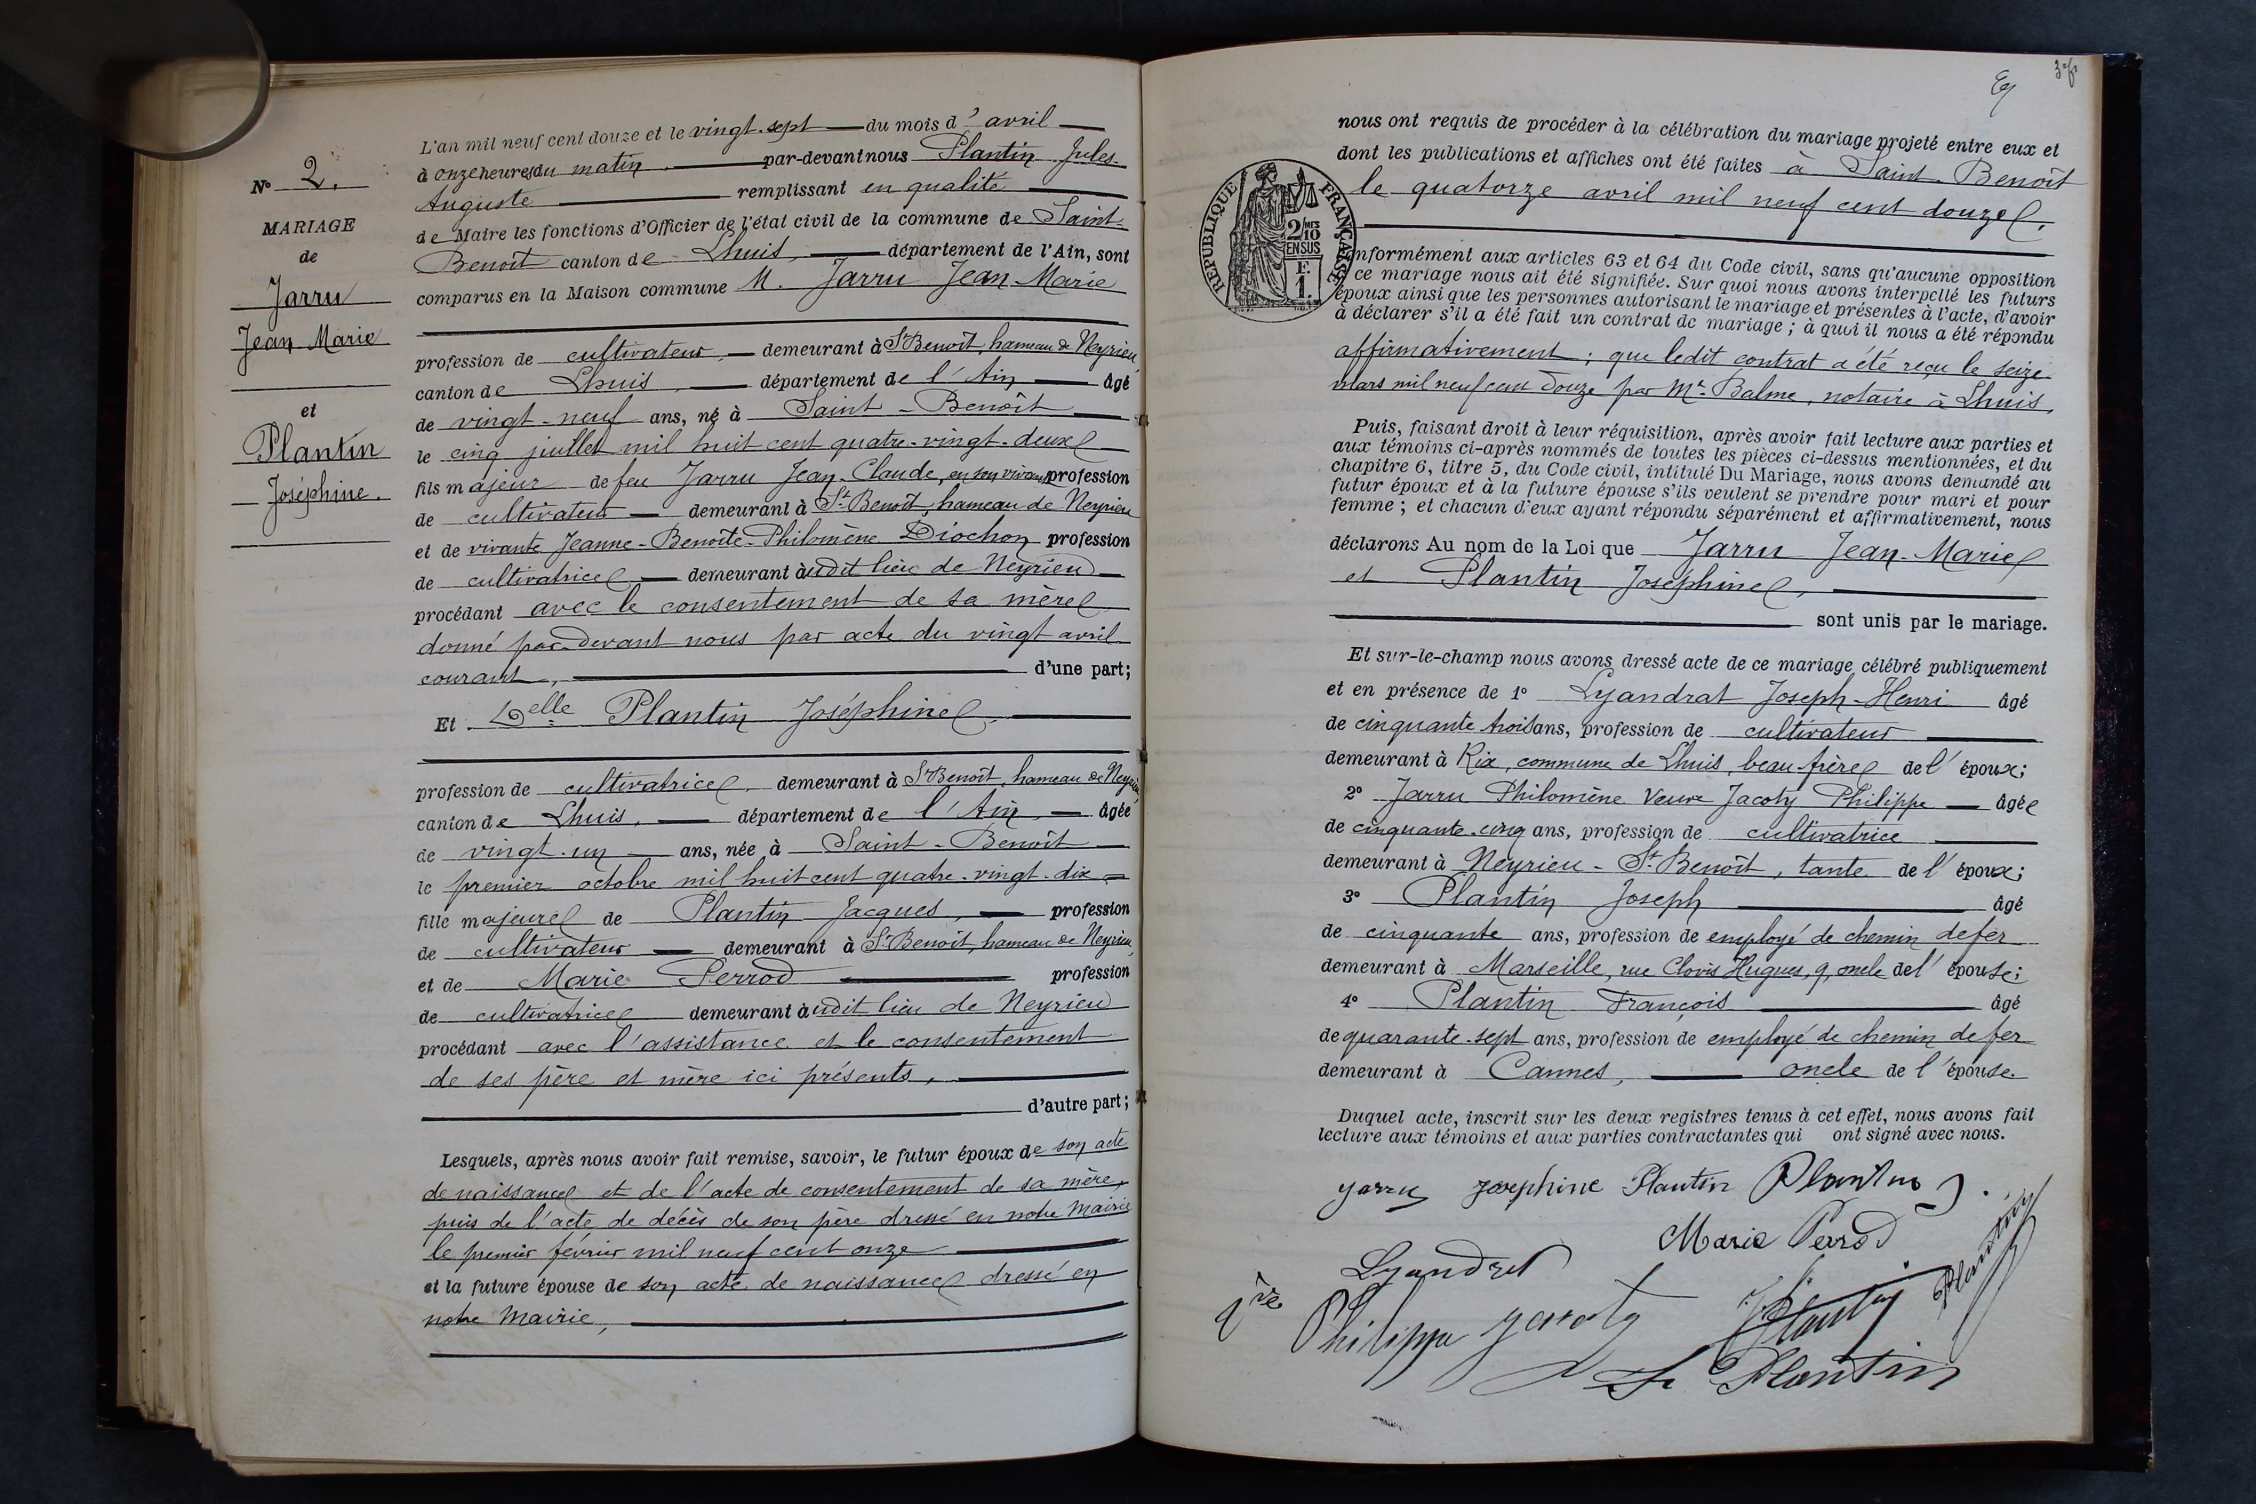 N° 2.
MARIAGE
de
Jarru
Jean Marie
et
Plantin
Joséphine.
L'an mil neuf cent douze et le vingt-sept du mois d'avril
à onze heures du matin par-devant nous Plantin Jules
Auguste remplissant en qualité
de Maire les fonctions d'Officier de l'état civil de la commune de Saint-
Benoît canton de Lhuis, département de l'Ain, sont
comparus en la Maison commune M. Jarru Jean-Marie
profession de cultivateur, demeurant à St Benoît, hameau de Neyrieu,
canton de Lhuis, département de l'Ain âgé
de vingt-neuf ans, né à Saint-Benoît
le cinq juillet mil huit cent quatre-vingt-deux
fils majeur de feu Jarru Jean-Claude, en son vivant profession
de cultivateur demeurant à St Benoît, hameau de Neyrieu
et de vivante Jeanne-Benoîte-Philomène Diochon profession
de cultivatrice demeurant audit lieu de Neyrieu
procédant avec le consentement de sa mère
donné par-devant nous par acte du vingt avril
courant, d'une part;
Et Delle Plantin Joséphine,
profession de cultivatrice, demeurant à St Benoît, hameau de Neyrieu,
canton de Lhuis, département de l'Ain, âgée
de vingt-un ans, née à Saint-Benoît
le premier octobre mil huit cent quatre-vingt-dix
fille majeure de Plantin Jacques, profession
de cultivateur demeurant à St Benoît, hameau de Neyrieu,
et de Marie Perrod profession
de cultivatrice demeurant audit lieu de Neyrieu
procédant avec l'assistance et le consentement
de ses père et mère ici présents,
d'autre part;
Lesquels, après nous avoir fait remise, savoir, le futur époux de son acte
de naissance et de l'acte de consentement de sa mère,
puis de l'acte de décès de son père dressé en notre Mairie
le premier février mil neuf cent onze
et la future épouse de son acte de naissance dressé en
notre Mairie,
nous ont requis de procéder à la célébration du mariage projeté entre eux et
dont les publications et affiches ont été faites à Saint-Benoît
le quatorze avril mil neuf cent douze,
RÉPUBLIQUE FRANÇAISE
2/10
EN SUS
F.
1.
nformément aux articles 63 et 64 du Code civil, sans qu'aucune opposition
ce mariage nous ait été signifiée. Sur quoi nous avons interpellé les futurs
époux ainsi que les personnes autorisant le mariage et présentes à l'acte, d'avoir
à déclarer s'il a été fait un contrat de mariage ; à quoi il nous a été répondu
affirmativement ; que ledit contrat a été reçu le seize
mars mil neuf cent douze par Mr. Balme, notaire à Lhuis,
Puis, faisant droit à leur réquisition, après avoir fait lecture aux parties et
aux témoins ci-après nommés de toutes les pièces ci-dessus mentionnées, et du
chapitre 6, titre 5, du Code civil, intitulé Du Mariage, nous avons demandé au
futur époux et à la future épouse s'ils veulent se prendre pour mari et pour
femme ; et chacun d'eux ayant répondu séparément et affirmativement, nous
déclarons Au nom de la Loi que Jarru Jean-Marie
et Plantin Joséphine,
sont unis par le mariage.
Et sur-le-champ nous avons dressé acte de ce mariage célébré publiquement
et en présence de 1° Lyandrat Joseph-Henri âgé
de cinquante trois ans, profession de cultivateur
demeurant à Rix, commune de Lhuis, beau-frère de l'époux;
2° Jarru Philomène Veuve Jacoty Philippe âgée
de cinquante-cinq ans, profession de cultivatrice
demeurant à Neyrieu-St Benoît, tante de l'époux;
3° Plantin Joseph âgé
de cinquante ans, profession de employé de chemin de fer
demeurant à Marseille, rue Clovis Hugues, 9, oncle de l'épouse;
4° Plantin François âgé
de quarante-sept ans, profession de employé de chemin de fer
demeurant à Cannes, oncle de l'épouse.
Duquel acte, inscrit sur les deux registres tenus à cet effet, nous avons fait
lecture aux témoins et aux parties contractantes qui ont signé avec nous.
Jarru Joséphine Plantin Plantin J.
Marie Perrod
Lyandrat Plantin
Vve Philippe Jacoty Plantin
Plantin